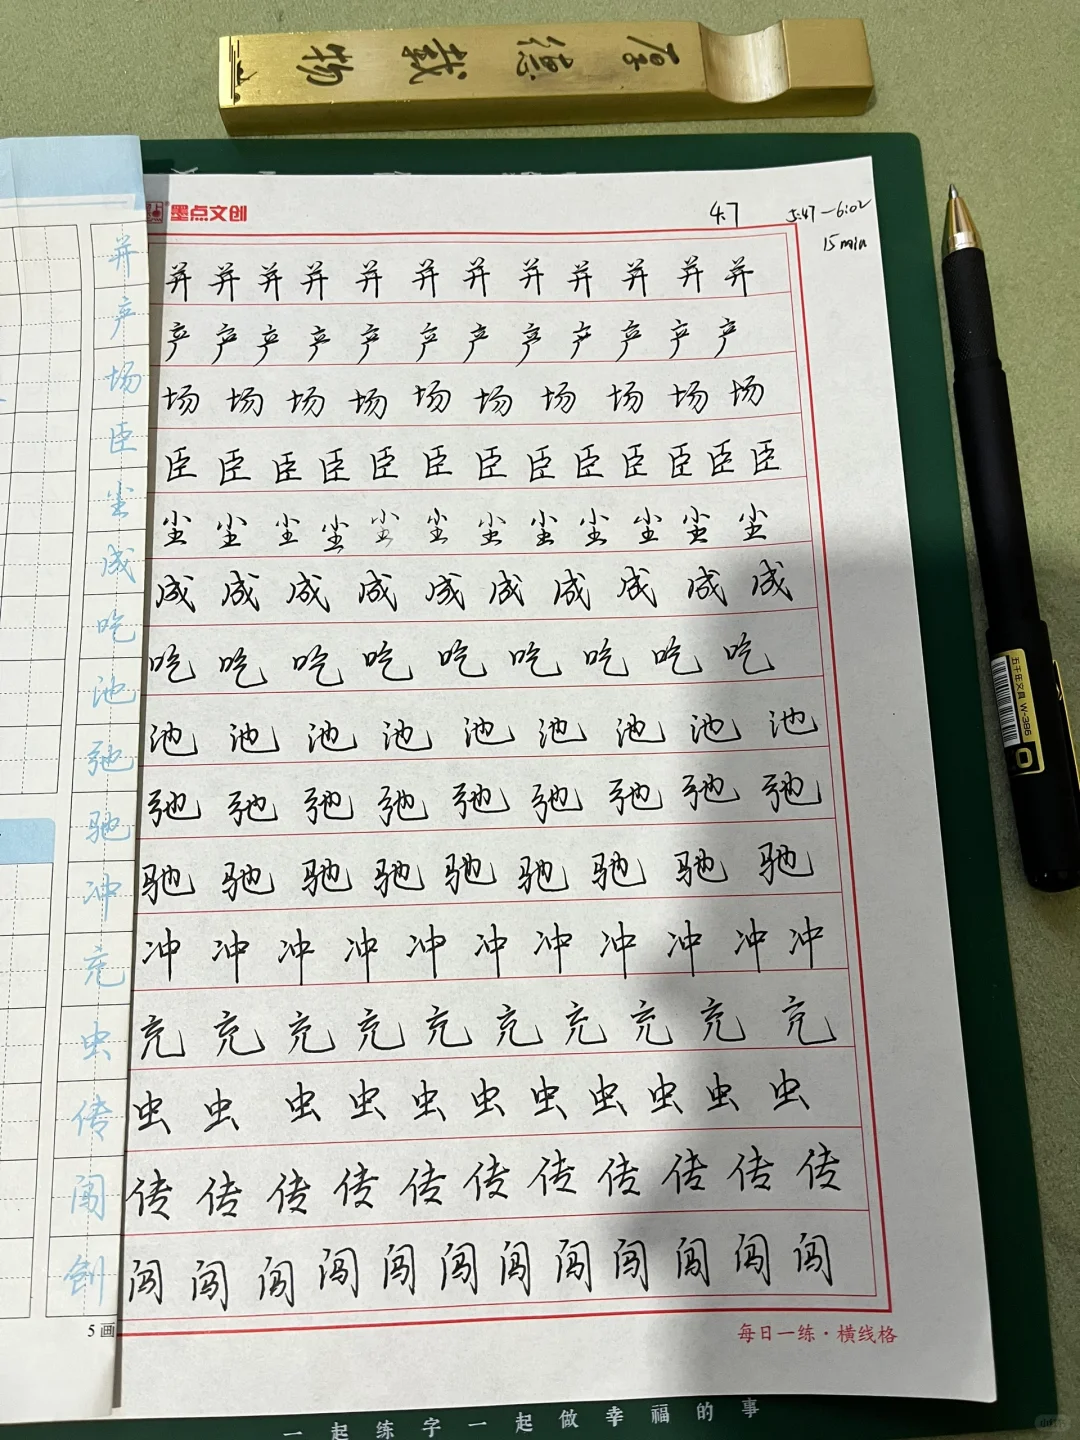 厚德载物
墨点文创
4.7
5:47—6:02
15min
并并并并并并并并并并并并
产产产产产产产产产产产产
场场场场场场场场场场
臣臣臣臣臣臣臣臣臣臣臣臣臣
尘尘尘尘尘尘尘尘尘尘尘尘
成成成成成成成成成成
吃吃吃吃吃吃吃吃吃
池池池池池池池池池
弛弛弛弛弛弛弛弛弛
驰驰驰驰驰驰驰驰驰
冲冲冲冲冲冲冲冲冲冲冲
充充充充充充充充充充
虫虫虫虫虫虫虫虫虫虫虫
传传传传传传传传传传传
闯闯闯闯闯闯闯闯闯闯闯闯
每日一练·横线格
并
产
场
臣
尘
成
吃
池
弛
驰
冲
充
虫
传
闯
创
5画
一起练字一起做幸福的事
W-386